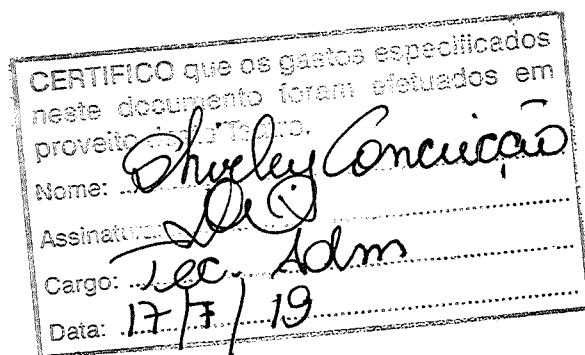 CERTIFICO que os gastos especificados
neste documento foram efetuados em
proveito
Nome: Shirley Conceição
Assinatura:
Cargo: Tec. Adm
Data: 17/7/19